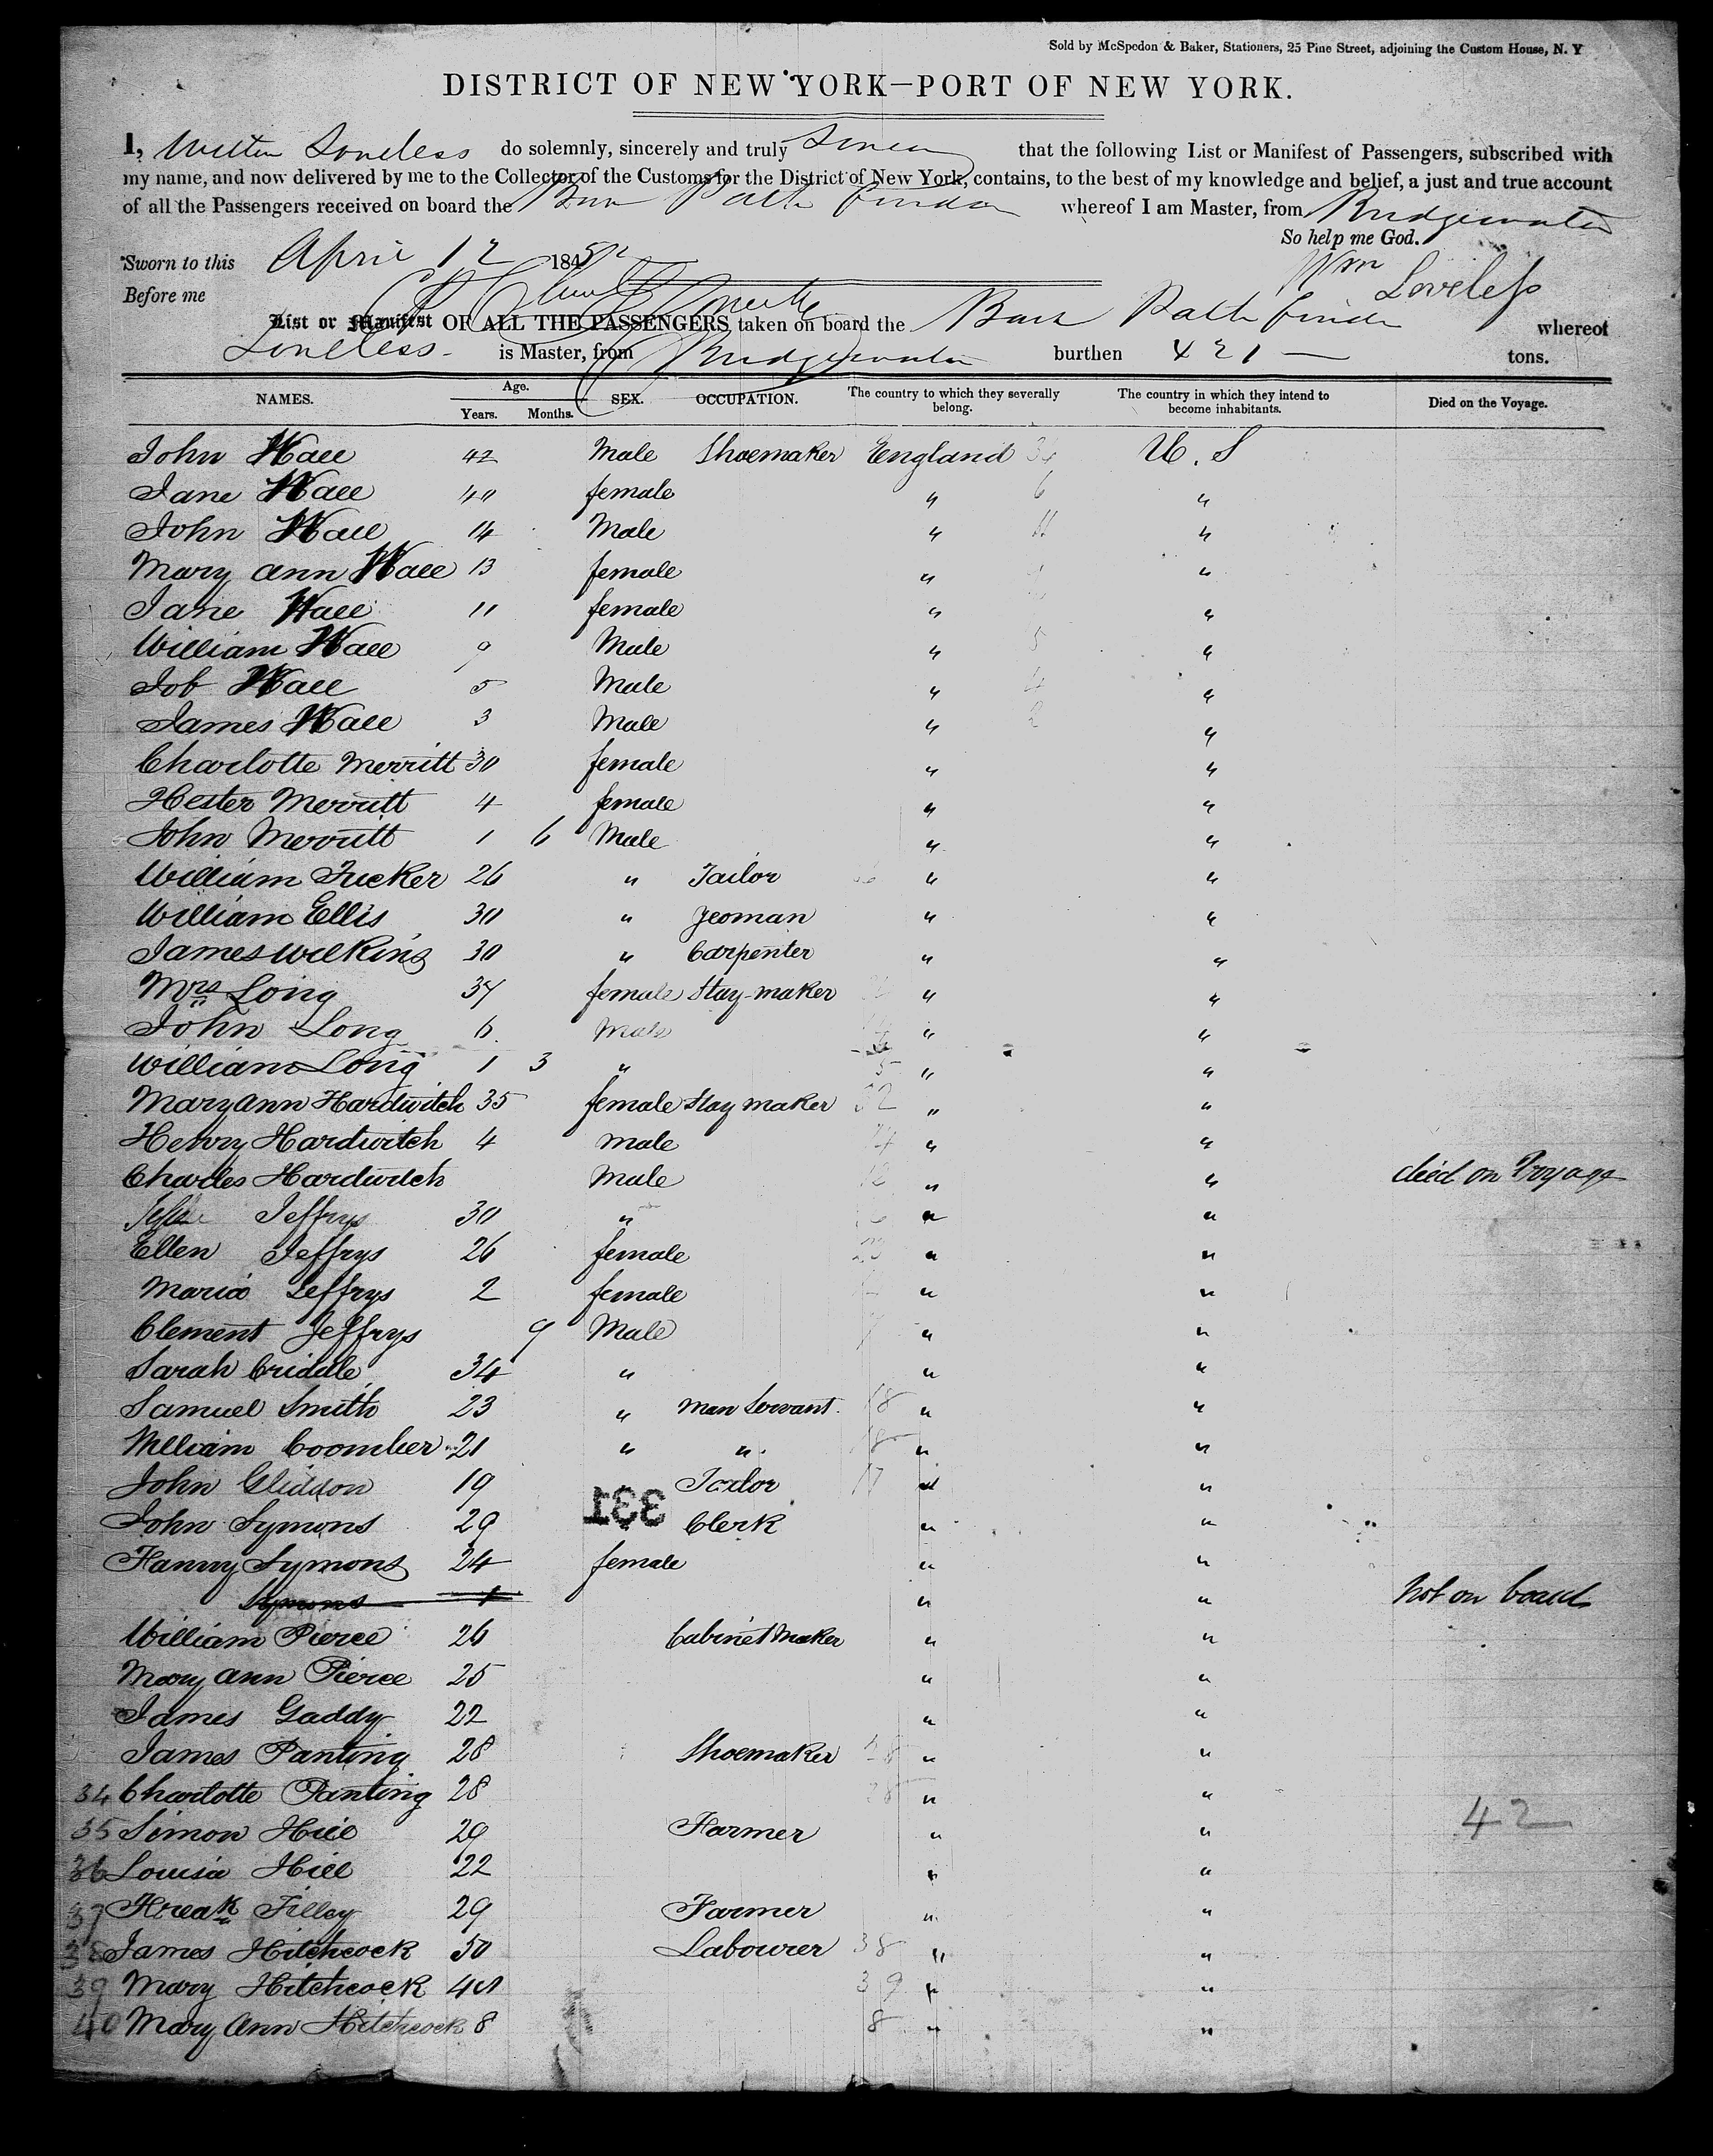 Sold by McSpedon & Baker, Stationers, 25 Pine Street, adjoining the Custom House, N. Y
DISTRICT OF NEW YORK—PORT OF NEW YORK.
I, Loveless do solemnly, sincerely and truly swear that the following List or Manifest of Passengers, subscribed with
my name, and now delivered by me to the Collector of the Customs for the District of New York, contains, to the best of my knowledge and belief, a just and true account
of all the Passengers received on board the Path finder whereof I am Master, from Bridgewater
So help me God.
Sworn to this April 12 185
Before me
Wm Loveless
List or Manifest OF ALL THE PASSENGERS taken on board the Bark Path finder whereof
Loveless is Master, from Bridgewater burthen 421 tons.
NAMES. Age. Years. Months. SEX. OCCUPATION. The country to which they severally belong. The country in which they intend to become inhabitants. Died on the Voyage.
John Wall 42 Male Shoemaker England U. S
Jane Wall 40 female " "
John Wall 14 Male " "
Mary ann Wall 13 female " "
Jane Wall 11 female " "
William Wall 9 Male " "
Job Wall 5 Male " "
James Wall 3 Male " "
Charlotte Merritt 30 female " "
Hester Merritt 4 female " "
John Merritt 1 6 Male " "
William Tucker 26 " Tailor " "
William Ellis 30 " Yeoman " "
James Wilkins 30 " Carpenter " "
Mrs Long 37 female Stay-maker " "
John Long 6 Male " "
William Long 1 3 " " "
Mary ann Hardwitch 35 female Stay maker " "
Henry Hardwitch 4 male " "
Charles Hardwitch Male " " died on Voyage
Jeffrys 30 " " "
Ellen Jeffrys 26 female " "
Maria Jeffrys 2 female " "
Clement Jeffrys 9 Male " "
Sarah Criddle 34 " " "
Samuel Smith 23 " Man Servant 18 " "
William Coomber 21 " " 18 " "
John Gliddon 19 Tailor 17 " "
331
John Symons 29 Clerk " "
Fanny Symons 24 female " "
Symons 1 " " Not on board
William Pierce 26 Cabinet Maker " "
Mary ann Pierce 25 " "
James Gaddy 22 " "
James Panting 28 Shoemaker 28 " "
34 Charlotte Panting 28 28 " "
35 Simon Hill 29 Farmer " " 42
36 Louisa Hill 22 " "
37 Tilley 29 Farmer " "
38 James Hitchcock 50 Labourer 38 " "
39 Mary Hitchcock 40 39 " "
40 Mary Ann Hitchcock 8 8 " "